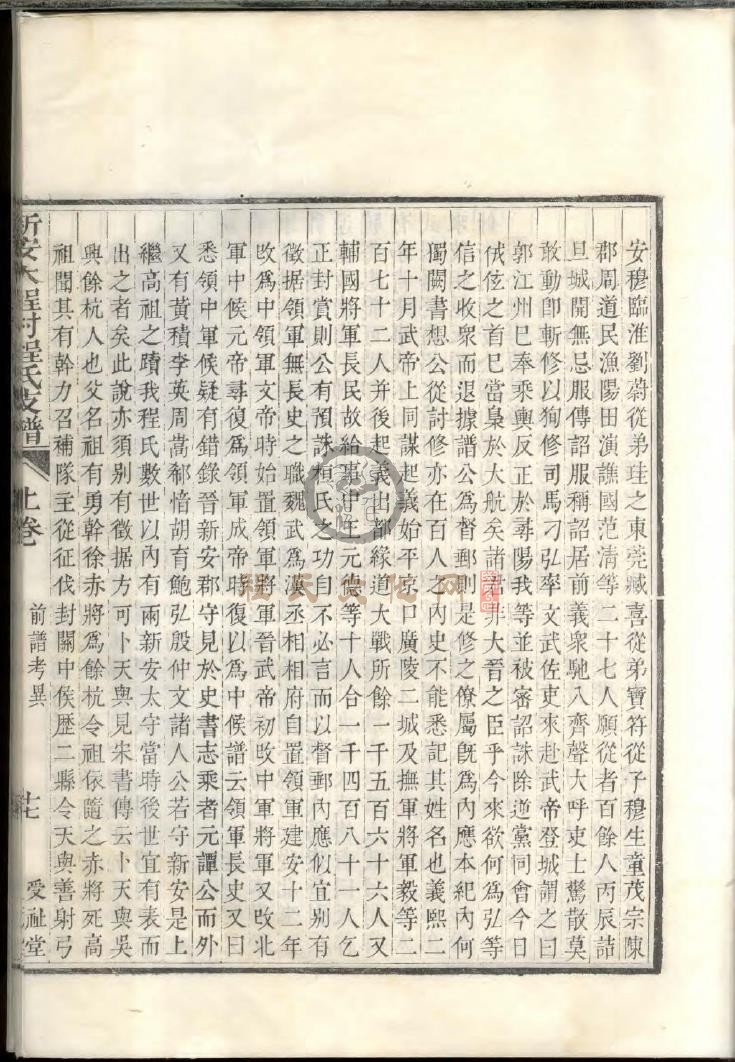 安穆臨淮劉蔚從弟珪之東莞臧喜從弟寶符從子穆生童茂宗陳
郡周道民漁陽田演譙國范清等二十七人願從者百餘人丙辰詰
旦城開無忌服傳詔服稱詔居前義衆馳入齊聲大呼吏士驚散莫
敢動卽斬修以狥修司馬刁弘率文武佐吏來赴武帝登城謂之曰
郭江州巳奉乘輿反正於尋陽我等並被密詔誅除逆黨同會今日
賊之首巳當梟於大航矣諸非大晋之臣乎今來欲何爲弘等
信之收衆而退據譜公爲督郵則是修之僚屬旣爲內應本紀內何
獨闕書想公從討修亦在百人之內史不能悉記其姓名也義熙二
年十月武帝上同謀起義始平京口廣陵二城及撫軍將軍毅等二
百七十二人并後起義出都緣道大戰所餘一千五百六十六人又
輔國將軍長民故給事王元德等十人合一千四百八十一人乞
正封賞則公有預誅桓氏之功自不必言而以督郵內應似宜别有
徵据領軍無長史之職魏武爲漢丞相相府自置領軍建安十二年
改爲中領軍文帝時始置領軍將軍晉武帝初改中軍將軍又改北
軍中候元帝尋復爲領軍成帝時復以爲中候譜云領軍長史又曰
悉領中軍候疑有錯錄晉新安郡守見於史書志乘者元譚公而外
又有黃積李英周嵩郗愔胡育鮑弘殷仲文諸人公若守新安是上
繼高祖之蹟我程氏數世以內有兩新安太守當時後世宜有表而
出之者矣此說亦須别有徵据方可卜天與見宋書傳云卜天與吳
興餘杭人也父名祖有勇幹徐赤將爲餘杭令祖依隨之赤將死高
祖聞其有幹力召補隊主從征伐封關中侯歷二縣令天與善射弓
新安大程村程氏支譜 上卷 前譜考異 十七 受祉堂